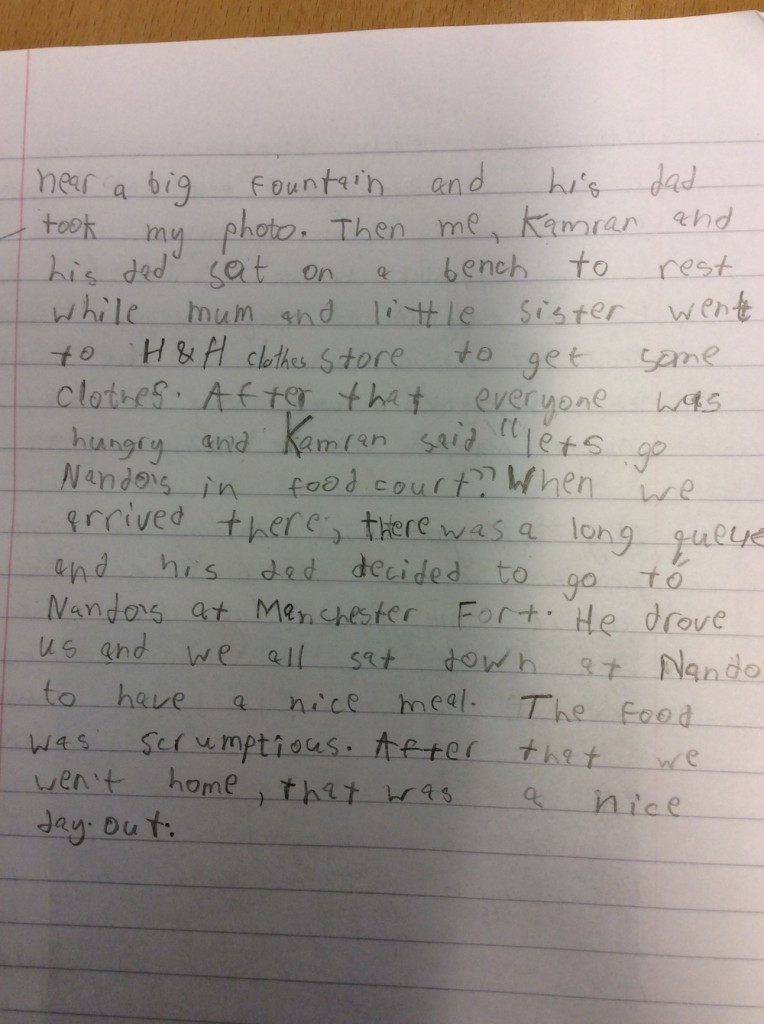 near a big fountain and his dad
took my photo. Then me, Kamran and
his dad sat on a bench to rest
while mum and little sister went
to H&H clothes store to get some
clothes. After that everyone was
hungry and Kamran said "lets go
Nandos in food court". When we
arrived there, there was a long queue
and his dad decided to go to
Nandos at Manchester Fort. He drove
us and we all sat down at Nando
to have a nice meal. The food
was scrumptious. After that we
wen't home, that was a nice
day. out.